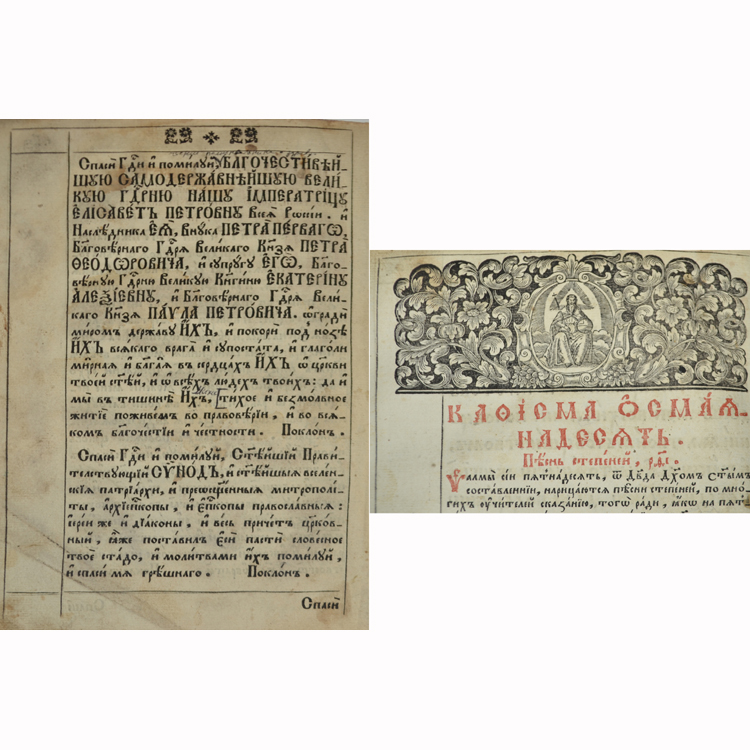 Спаси́ Гдⷭ҇и и҆ поми́луй, БЛАГОЧЕСТИВѢ́Й-
ШУЮ САМОДЕРЖА́ВНѢЙШУЮ ВЕЛИ́-
КУЮ ГДⷭ҇РНЮ НА́ШУ І҆МПЕРАТРІ́ЦУ
Е҆ЛІСАВЕ́ТЪ ПЕТРО́ВНУ всеѧ̀ Рѡссі́и. и҆
Наслѣ́дника Е҆Ѧ̀, Вну́ка ПЕТРА̀ ПЕ́РВАГѠ,
Бл҃говѣ́рнаго Гдⷭ҇рѧ Вели́каго Кн҃зѧ ПЕТРА̀
ѲЕО́ДѠРОВИЧА, и҆ супрꙋ́гꙋ Е҆ГѠ̀, Бл҃го-
вѣ́рнꙋю Гдⷭ҇рню Вели́кꙋю Кн҃ги́ню Е҆КАТЕРІ́НУ
А҆ЛЕѮІ́ЕВНУ, и҆ Бл҃говѣ́рнаго Гдⷭ҇рѧ Вели́-
каго Кн҃зѧ ПА́УЛА ПЕТРО́ВИЧА. ѡ҆градѝ
ми́ромъ держа́вꙋ И҆́ХЪ, и҆ покорѝ под но́зѣ
И҆́ХЪ всѧ́каго врага̀ и҆ сꙋпоста́та, и҆ глаго́ли
ми̑рнаѧ и҆ бл҃га̑ѧ въ сердца́хъ И҆́ХЪ ѡ҆ цр҃кви
твое́й ст҃е́й, и҆ ѡ҆ всѣ́хъ лю́дехъ твои́хъ: да и҆
мы̀ въ тишинѣ̀ И҆́хъ, ти́хое и҆ безмо́лвное
житїѐ поживе́мъ во правовѣ́рїи, и҆ во всѧ́-
комъ бл҃гоче́стїи и҆ че́стности. Покло́нъ.
Спасѝ Гдⷭ҇и и҆ поми́лꙋй, Ст҃ѣ́йшїй Прави́-
телствꙋющїй СѴНО́ДЪ, и҆ ст҃ѣ́йшыѧ вселе́н-
скїѧ патрїа́рхи, и҆ преѡсщ҃е́нныѧ митрополі́-
ты, а҆рхїепⷭ҇копы и҆ е҆пⷭ҇копы правосла́вныѧ:
і҆ере́и же и҆ дїа́коны, и҆ ве́сь при́четъ цр҃ко́в-
ный, ꙗ҆̀же поста́вилъ є҆сѝ пастѝ слове́сное
твоѐ ста́до, и҆ моли́твами и҆́хъ поми́лꙋй,
и҆ спаси́ мѧ грѣ́шнаго. Покло́нъ.
Спасѝ
КАѲІ́СМА Ѻ҆СМА́Ѧ-
НА́ДЕСѦТЬ.
Пѣ́снь степе́ней, рѳ҃і.
Ѱалмы̀ сі́и пѧтна́десѧть, ѿ Дв҃да Дх҃омъ ст҃ы́мъ
соста́вленнїи, нарица́ютсѧ пѣ́сни степе́ней, по мно́-
гихъ ᲂу҆чи́телей сказа́нїю, тогѡ̀ ра́ди, ꙗ҆́кѡ на пѧт